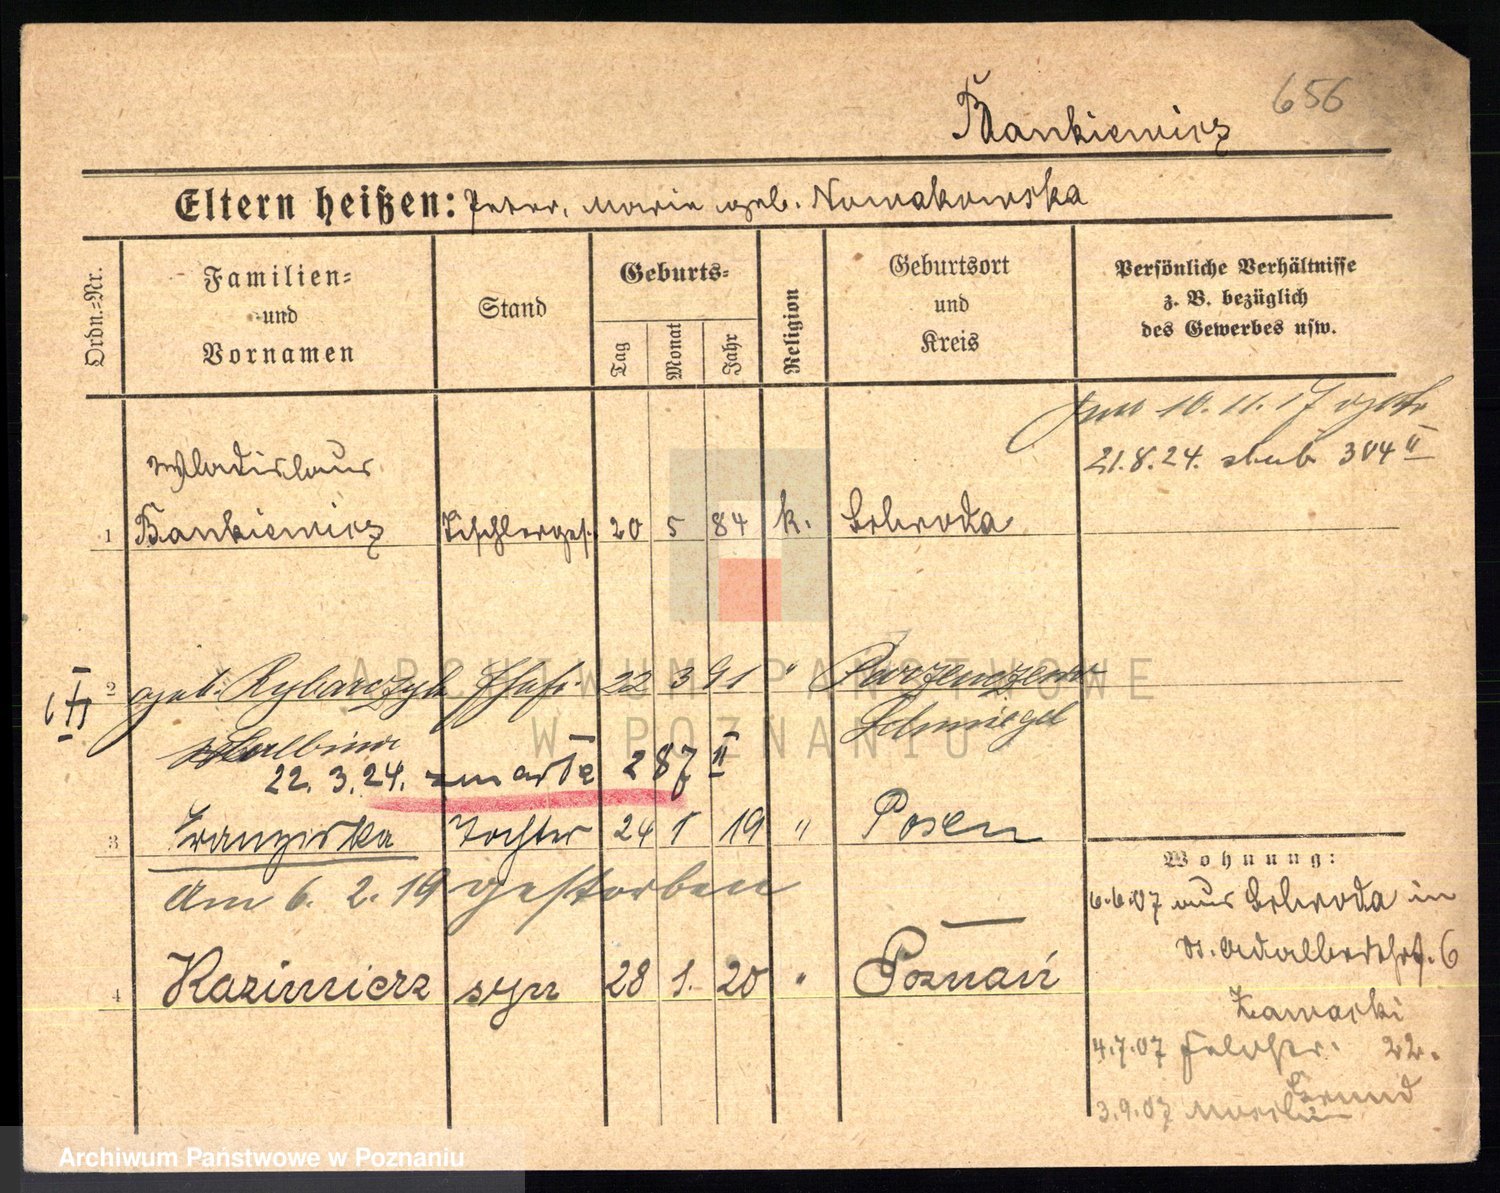 656
Bankiewicz
Eltern heißen: Peter, Marie geb. Nowakowska
Ordn.-Nr.
Familien-
und
Vornamen
Stand
Geburts-
Tag
Monat
Jahr
Religion
Geburtsort
und
Kreis
Persönliche Verhältnisse
z. B. bezüglich
des Gewerbes usw.
10. 11. 17
21.8.24. ślub 384 II
Wladislaus
1 Bankiewicz Tischlerges. 20 5 84 k. Schroda
2 geb. Rybarczyk Ehefr. 22 3 91 "
Schmiegel
22. 3. 24. zmarła 287 II
3 Franziska Tochter 24 1 19 " Posen
Am 6. 2. 19 gestorben
4 Kazimierz syn 28 1. 20 " Poznań
Wohnung:
6.6.07 aus Schroda in
St. Adalbertstr. 6
Zawacki
4.7.07 22.
Grund
3.9.07
ARCHIWUM PAŃSTWOWE
W POZNANIU
Archiwum Państwowe w Poznaniu